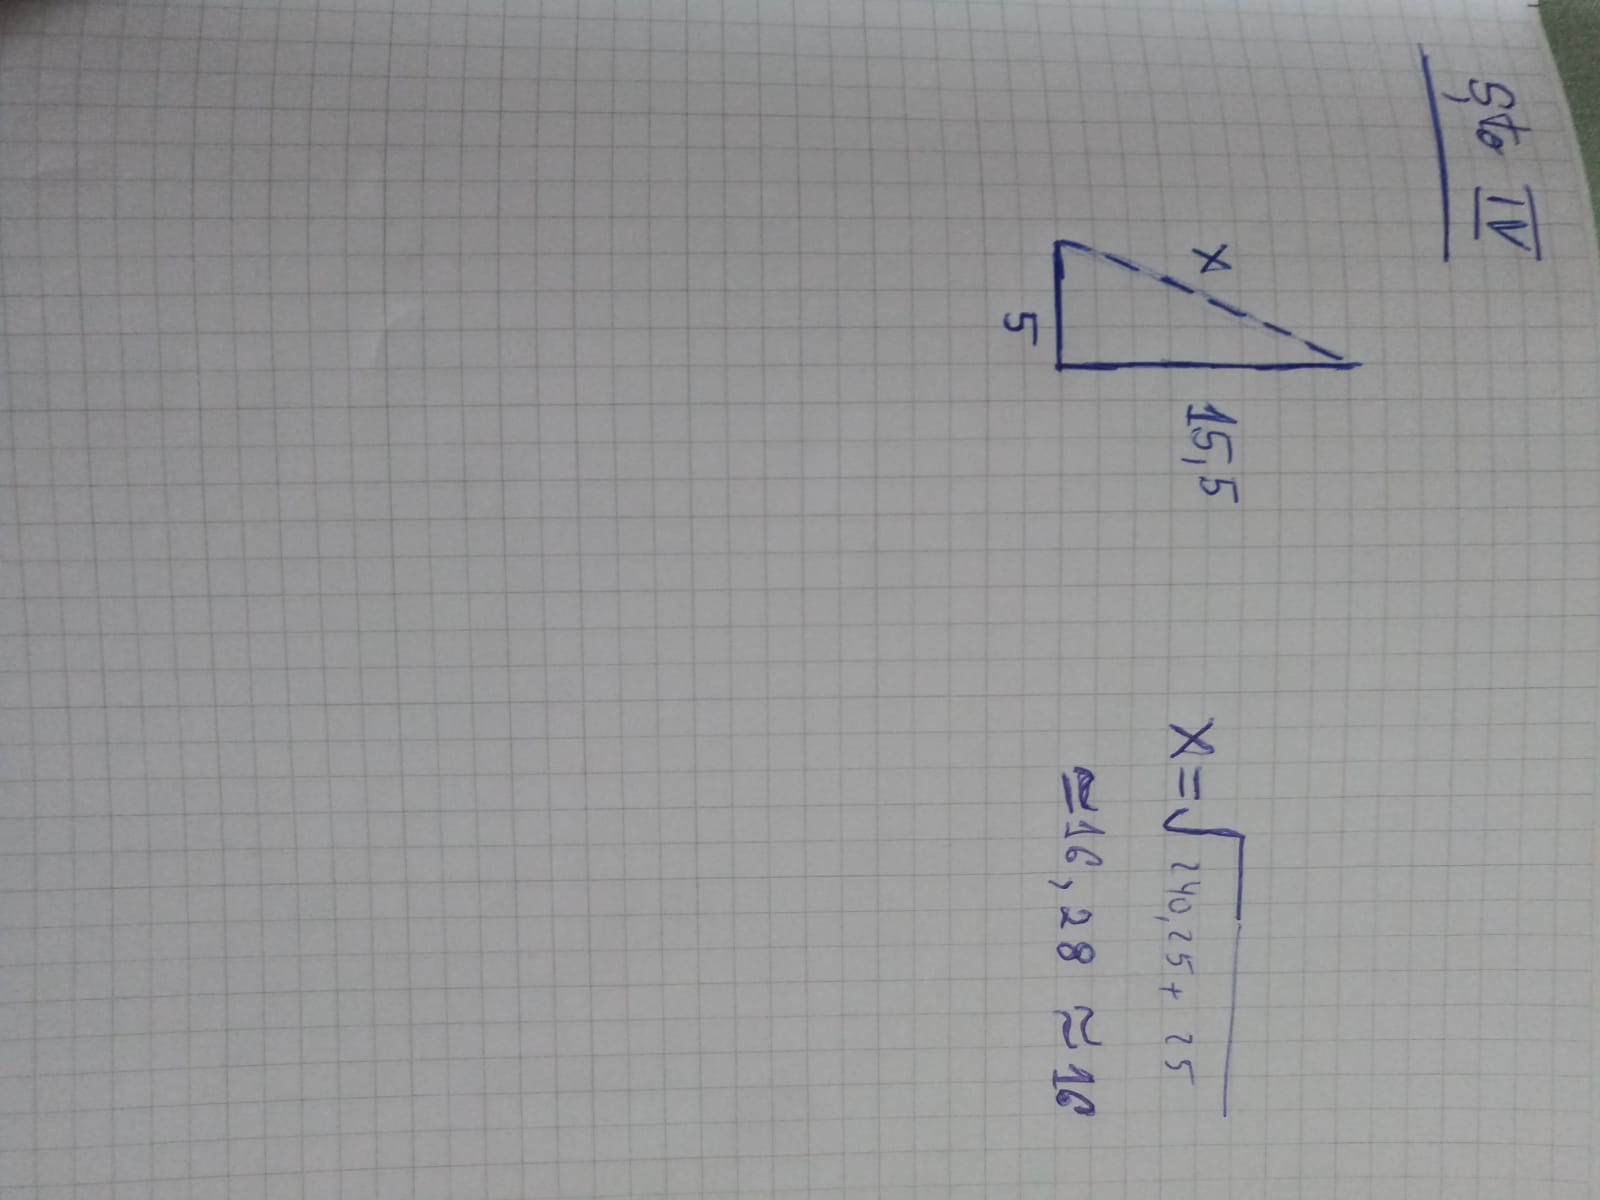 Şto IV
x
15,5
5
x=√240,25+ 25
≅16,28 ≈16